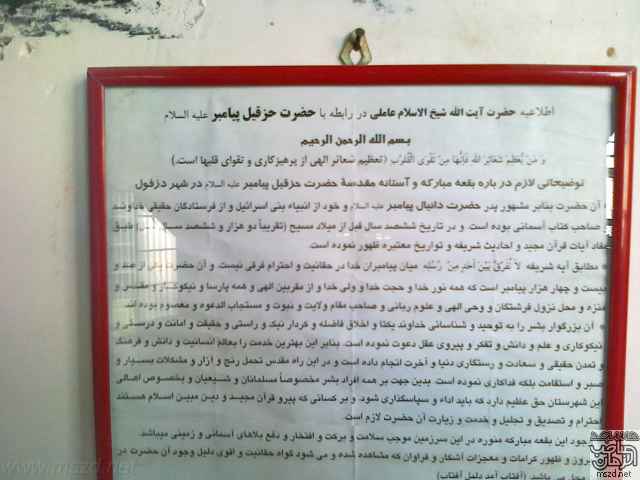 اطلاعیه حضرت آیت الله شیخ الاسلام عاملی در رابطه با حضرت حزقیل پیامبر علیه السلام
بسم الله الرحمن الرحیم
وَ مَنْ یُعَظِّمْ شَعائِرَ اللهِ فَاِنَّها مِنْ تَقْوَی الْقُلُوبِ (تعظیم شعائر الهی از پرهیزکاری و تقوای قلبها است.)
توضیحاتی لازم در باره بقعه مبارکه و آستانه مقدسهٔ حضرت حزقیل پیامبر علیه السلام در شهر دزفول
آن حضرت بنابر مشهور پدر حضرت دانیال پیامبر علیه السلام و خود از انبیاء بنی اسرائیل و از فرستادگان حقیقی خداوند
صاحب کتاب آسمانی بوده است و در تاریخ ششصد سال قبل از میلاد مسیح (تقریباً دو هزار و ششصد سال قبل) طبق
مفاد آیات قرآن مجید و احادیث شریفه و تواریخ معتبره ظهور نموده است.
مطابق آیه شریفه لا نُفَرِّقُ بَیْنَ اَحَدٍ مِنْ رُسُلِهِ میان پیامبران خدا در حقانیت و احترام فرقی نیست. و آن حضرت یکی از صد و
بیست و چهار هزار پیامبر است که همه نور خدا و حجت خدا و ولی خدا و از مقربین الهی و همه پارسا و نیکوکار و مقدس و
منزه و محل نزول فرشتگان و وحی الهی و علوم ربانی و صاحب مقام ولایت و نبوت و مستجاب الدعوه و معصوم بوده اند
آن بزرگوار بشر را به توحید و شناسائی خداوند یکتا و اخلاق فاضله و کردار نیک و راستی و حقیقت و امانت و درستی و
نیکوکاری و علم و دانش و تفکر و پیروی عقل دعوت نموده است. بنابر این بهترین خدمت را بعالم انسانیت و دانش و فرهنگ
و تمدن حقیقی و سعادت و رستگاری دنیا و آخرت انجام داده است و در این راه مقدس تحمل رنج و آزار و مشکلات بسیار و
صبر و استقامت بلکه فداکاری نموده است. بدین جهت بر همه افراد بشر مخصوصاً مسلمانان و شیعیان و بخصوص اهالی
این شهرستان حق عظیم دارد که باید اداء و سپاسگذاری شود. و بر کسانی که پیرو قرآن مجید و دین مبین اسلام هستند
احترام و تصدیق و تجلیل و خدمت و زیارت آن حضرت لازم است.
وجود این بقعه مبارکه منوره در این سرزمین موجب سلامت و برکت و افتخار و دفع بلاهای آسمانی و زمینی میباشد.
و ظهور کرامات و معجزات آشکار و فراوان که مشاهده شده و می شود گواه حقانیت و اقوی دلیل وجود آن حضرت در
محل می باشد. (آفتاب آمد دلیل آفتاب)
www.mszd.net
mszd.net